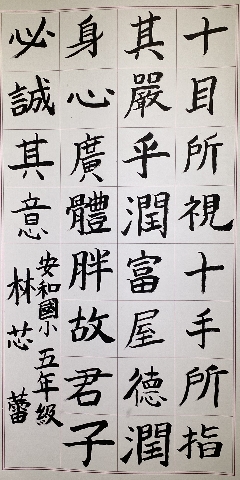 十目所視十手所指
其嚴乎潤富屋德潤
身心廣體胖故君子
必誠其意
安和國小五年級
林芯蕾